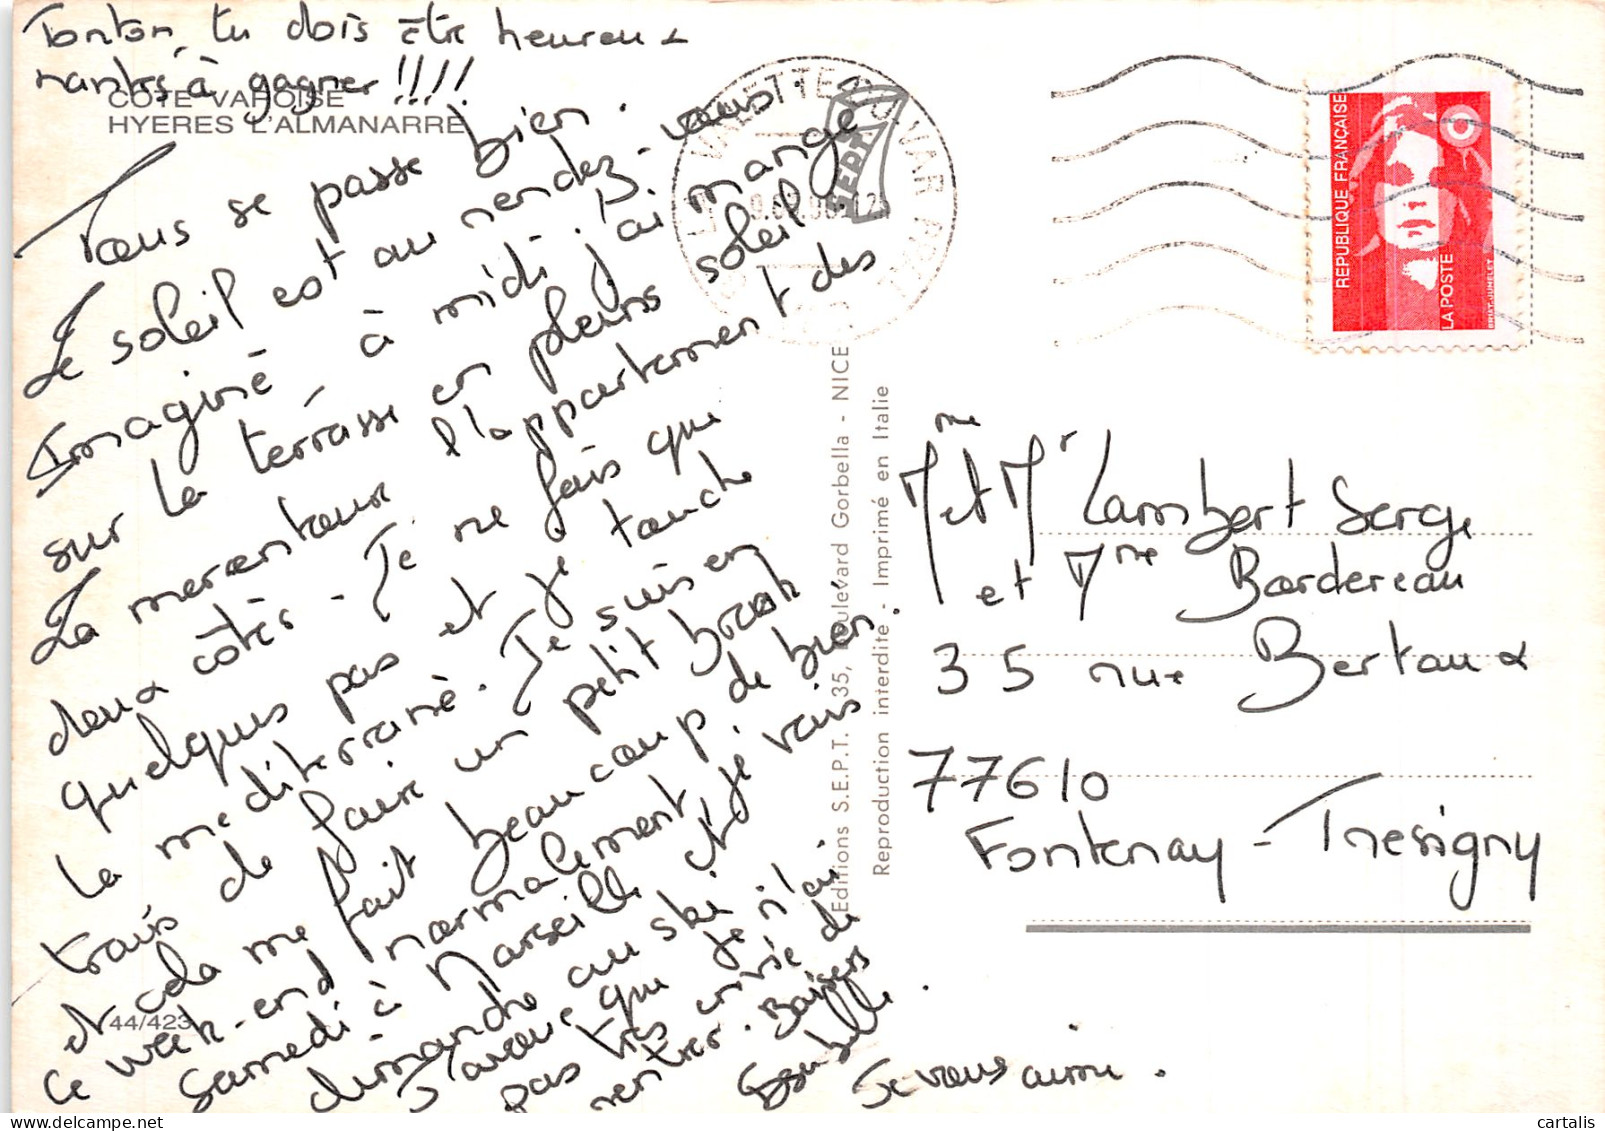 Tonton, tu dois être heureux
nantes à gagner !!!!
COTE VAROISE
HYERES L'ALMANARRE
Tous se passe bien.
Le soleil est au rendez-vous.
Imaginé à midi j'ai mangé
sur la terrasse en pleins soleil
La mer entour l'appartement des
deux côtés. Je ne fais que
quelques pas et je touche
la mediterrané. Je suis en
trais de faire un petit break
et cela me fait beaucoup de bien.
Ce week-end normalement,
Samedi à Marseille et je vais
dimanche au ski
J'avoue que je n'ai
pas très envie de
rentrer. Baisers
Isabelle
Je vous aime.
44/423
Editions S.E.P.T. 35, Boulevard Gorbella - NICE
Reproduction interdite - Imprimé en Italie
SEPT
LA VALETTE DU VAR
REPUBLIQUE FRANÇAISE
LA POSTE
BRIAT-JUMELET
Mme et Mr Lambert Serge
et Mme Bordereau
35 rue Bertaux
77610
Fontenay-Tresigny
cartalis